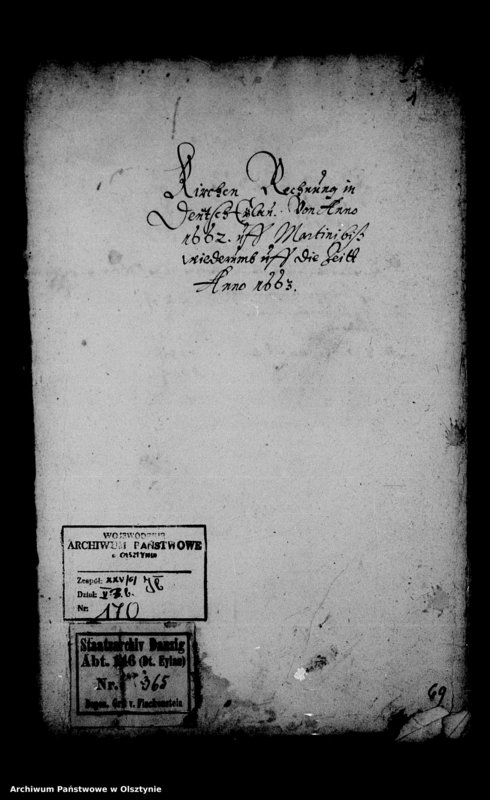 1
Kirchen Rechnung in
Deutsch Eylau. Von Anno
1662. uff Martini biß
wiederumb uff die Zeitt
Anno 1663.
WOJEWÓDZKIE
ARCHIWUM PAŃSTWOWE
w OLSZTYNIE
Zespół: XXV/6/
Dział:
Nr: 170
Staatsarchiv Danzig
Abt. (Dt. Eylau)
Nr. 365
Depos. Graf v. Finckenstein
69
Archiwum Państwowe w Olsztynie